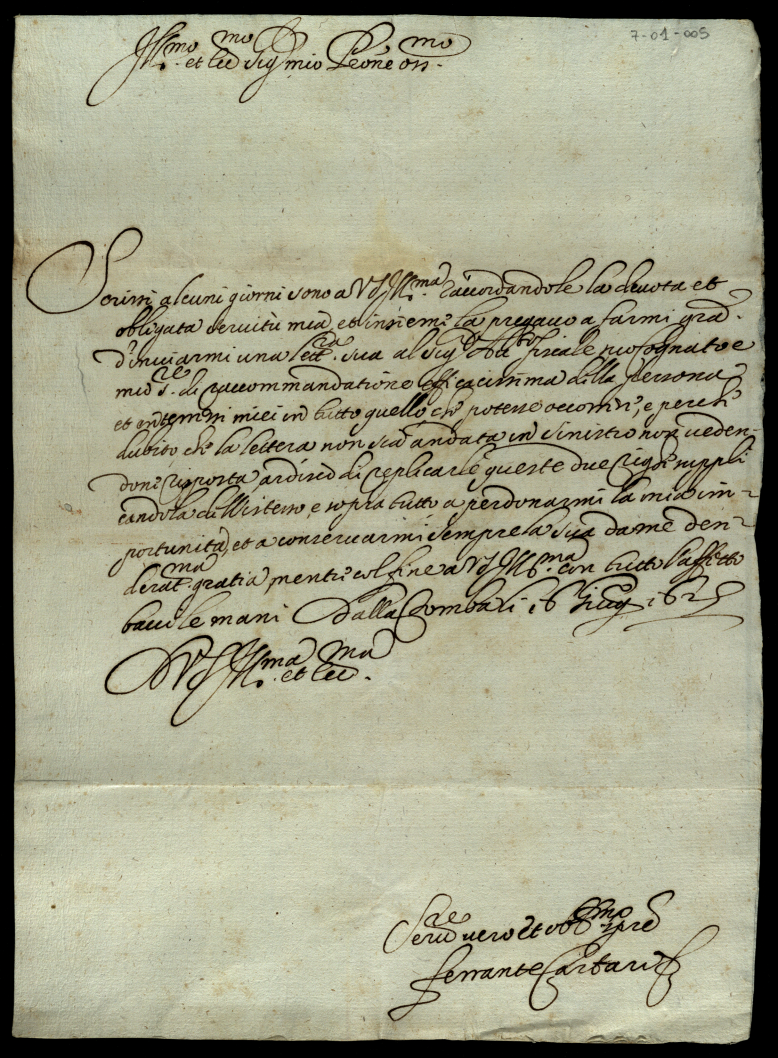 7-01-005
Ill.mo et Ecc.mo Sig mio P.rone oss.mo
Scrissi alcuni giorni sono a VS Ill.ma raccordandole la devota et
obligata servitù mia, et insieme la pregavo a farmi grã.
d'inviarmi una lett.ra sua al Sig.r fiscale suo Cognato e
mio S.re di raccommandatione efficacissima della persona
et interessi miei in tutto quello che potesse occorrere, e perche
dubito che la lettera non sia andata in sinistro non veden-
done risposta ardisco di replicarle queste due righe suppli
candola dell'istesso, e sopra tutto a perdonarmi la mia im-
portunità, et a conservarmi sempre la sua da me desi-
derat.ma gratia, mentre col fine a VS Ill.ma con tutto l'affetto
bacio le mani Dalla 16 Giug. 162
D VS Ill.ma et Ecc.ma
Ser.re vero et obb.mo spre
Ferrante Cartari